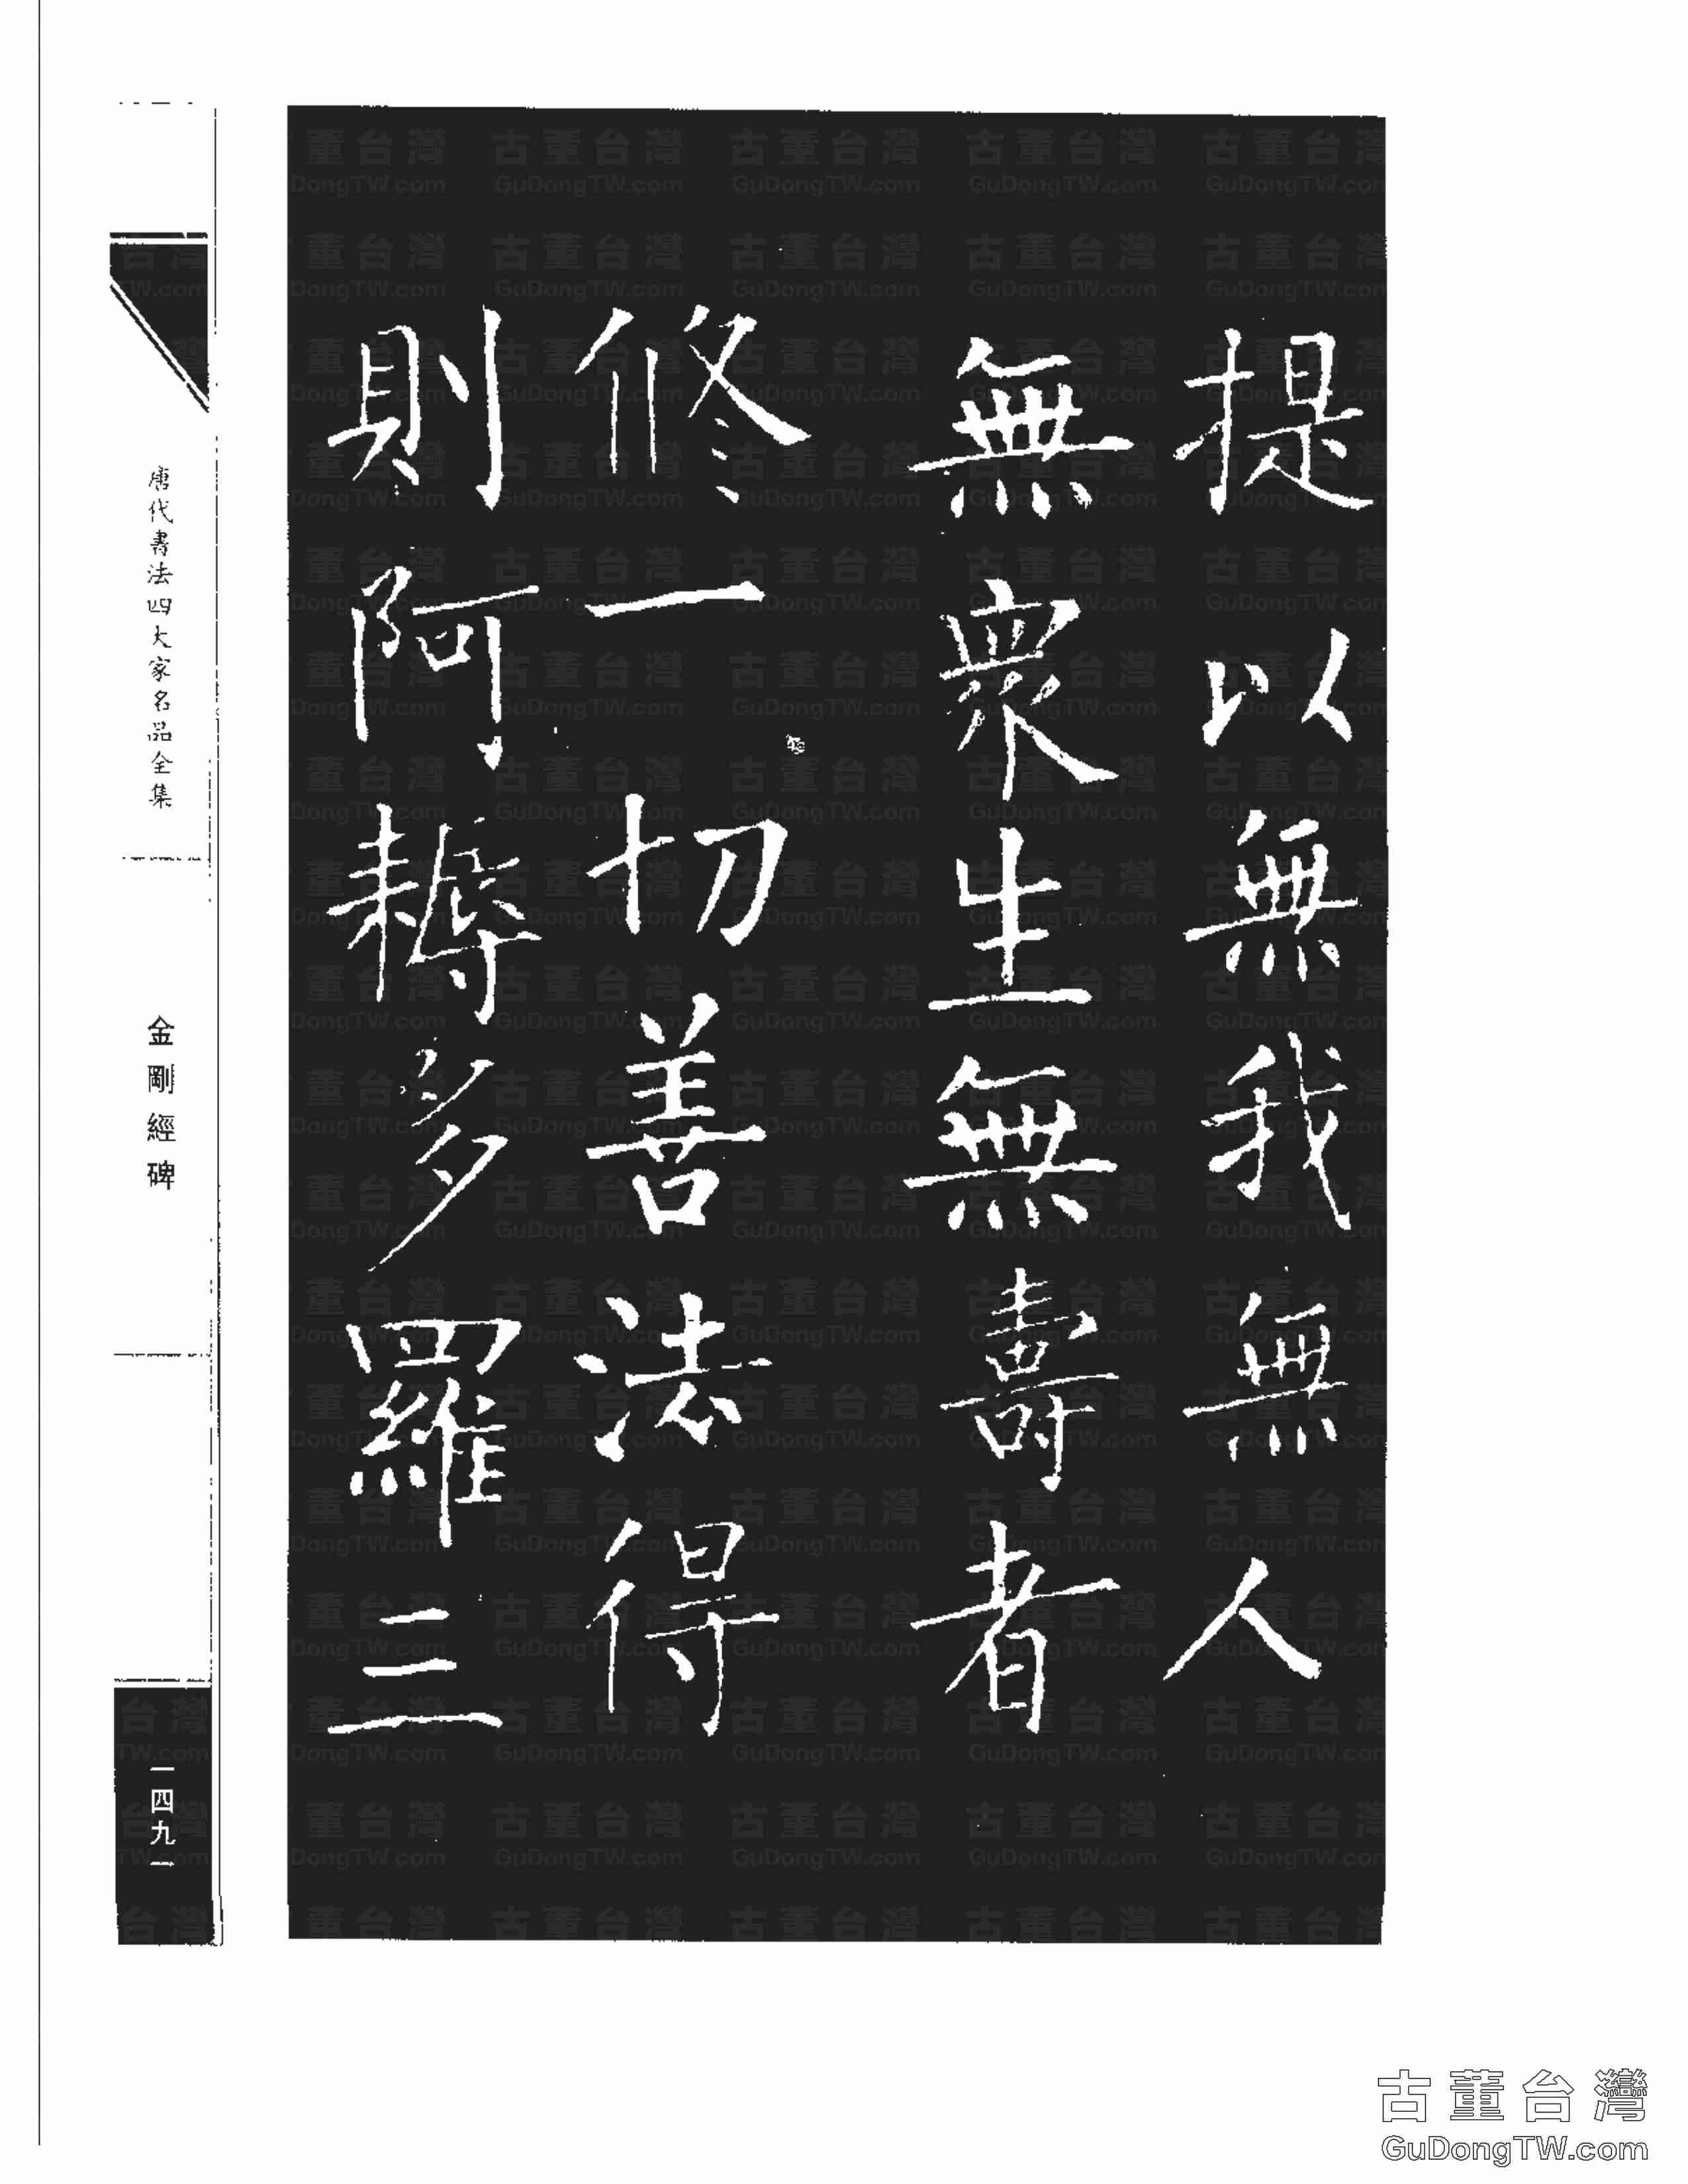 提以無我無人
無衆生無壽者
修一切善法得
則阿耨多羅三
唐代書法四大家名品全集
金剛經碑
一四九一
古董台灣
GuDongTW.com